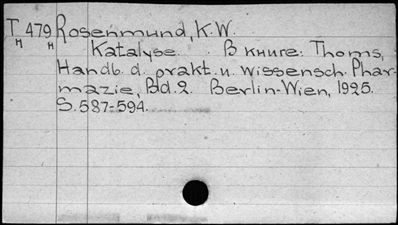 T 479 Rosenmund, K.W.
н н Katalyse. В книге: Thoms,
Handb. d. prakt. u. wissensch. Phar-
mazie, Bd. 2. Berlin-Wien, 1925.
S. 587-594.